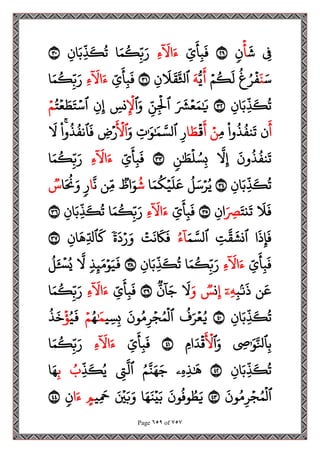 فِى شَأۡنٖ ٢٩ فَبِأَىِّ ءَالَآءِ رَبِّكُمَا تُكَذِّبَانِ ٣٠
سَنَفۡرُغُ لَكُمۡ أَيُّهَ ٱلثَّقَلَانِ ٣١ فَبِأَىِّ ءَالَآءِ رَبِّكُمَا
تُكَذِّبَانِ ٣٢ يَٰمَعۡشَرَ ٱلۡجِنِّ وَٱلۡإِنسِ إِنِ ٱسۡتَطَعۡتُمۡ
أَن تَنفُذُواْ مِنۡ أَقۡطَارِ ٱلسَّمَٰوَٰتِ وَٱلۡأَرۡضِ فَٱنفُذُواْۚ لَا
تَنفُذُونَ إِلَّا بِسُلۡطَٰنٖ ٣٣ فَبِأَىِّ ءَالَآءِ رَبِّكُمَا
تُكَذِّبَانِ ٣٤ يُرۡسَلُ عَلَيۡكُمَا شُوَاظٞ مِّن نَّارٖ وَنُحَاسٞ
فَلَا تَنتَصِرَانِ ٣٥ فَبِأَىِّ ءَالَآءِ رَبِّكُمَا تُكَذِّبَانِ ٣٦
فَإِذَا ٱنشَقَّتِ ٱلسَّمَآءُ فَكَانَتۡ وَرۡدَةٗ كَٱلدِّهَانِ ٣٧
فَبِأَىِّ ءَالَآءِ رَبِّكُمَا تُكَذِّبَانِ ٣٨ فَيَوۡمَئِذٖ لَّا يُسۡـَٔلُ
عَن ذَنۢبِهِۦٓ إِنسٞ وَلَا جَآنّٞ ٣٩ فَبِأَىِّ ءَالَآءِ رَبِّكُمَا
تُكَذِّبَانِ ٤٠ يُعۡرَفُ ٱلۡمُجۡرِمُونَ بِسِيمَٰهُمۡ فَيُؤۡخَذُ
بِٱلنَّوَٰصِى وَٱلۡأَقۡدَامِ ٤١ فَبِأَىِّ ءَالَآءِ رَبِّكُمَا
تُكَذِّبَانِ ٤٢ هَٰذِهِۦ جَهَنَّمُ ٱلَّتِى يُكَذِّبُ بِهَا
ٱلۡمُجۡرِمُونَ ٤٣ يَطُوفُونَ بَيۡنَهَا وَبَيۡنَ حَمِيمٍ ءَانٖ ٤٤
Page ٦٥٩ of ٧٥٧